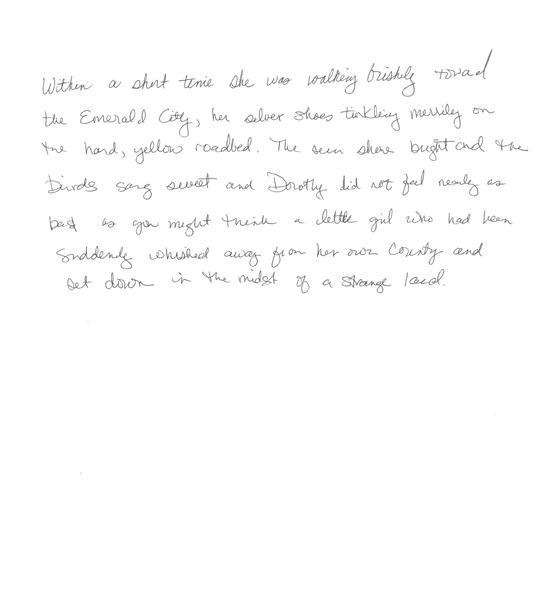 Within a short time she was walking briskly toward
the Emerald City, her silver shoes tinkling merrily on
the hard, yellow roadbed. The sun shone bright and the
birds sang sweet and Dorothy did not feel nearly as
bad as you might think a little girl who had been
suddenly whisked away from her own country and
set down in the midst of a strange land.